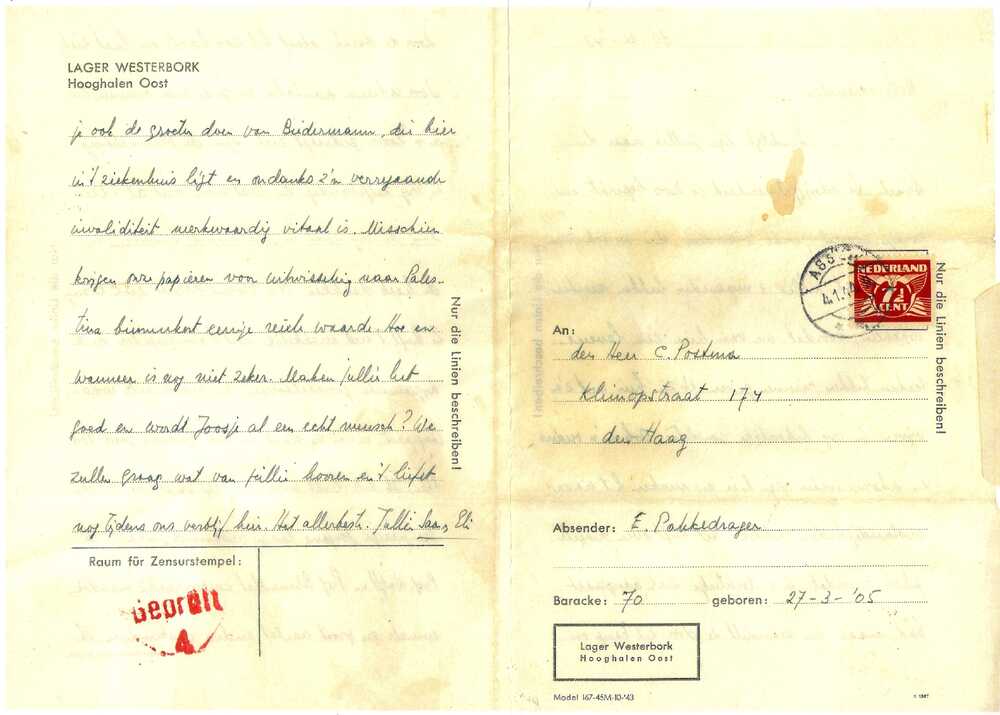 LAGER WESTERBORK
Hooghalen Oost
je ook de groeten doen van Biedermann, die hier
in't ziekenhuis ligt en ondanks z'n
invaliditeit merkwaardig vitaal is. Misschien
krijgen onze papieren voor uitwisseling naar Pales-
tina binnenkort eenige waarde. Hoe en
wanneer is nog niet zeker. Maken jullie het
goed en wordt Joosje al een echt mensch? We
zullen graag wat van jullie hooren en 't liefst
nog tijdens ons verblijf hier. Het allerbeste. Jullie Saar, Eli
Nur die Linien beschreiben!
Raum für Zensurstempel:
Geprüft
4
ASS
4.1.4
NEDERLAND
7½
CENT
An:
den Heer C. Postma
Klimopstraat 174
den Haag
Nur die Linien beschreiben!
Absender: E. Pakkedrager
Baracke: 70 geboren: 27-3-'05
Lager Westerbork
Hooghalen Oost
Model 167-45M-10-'43